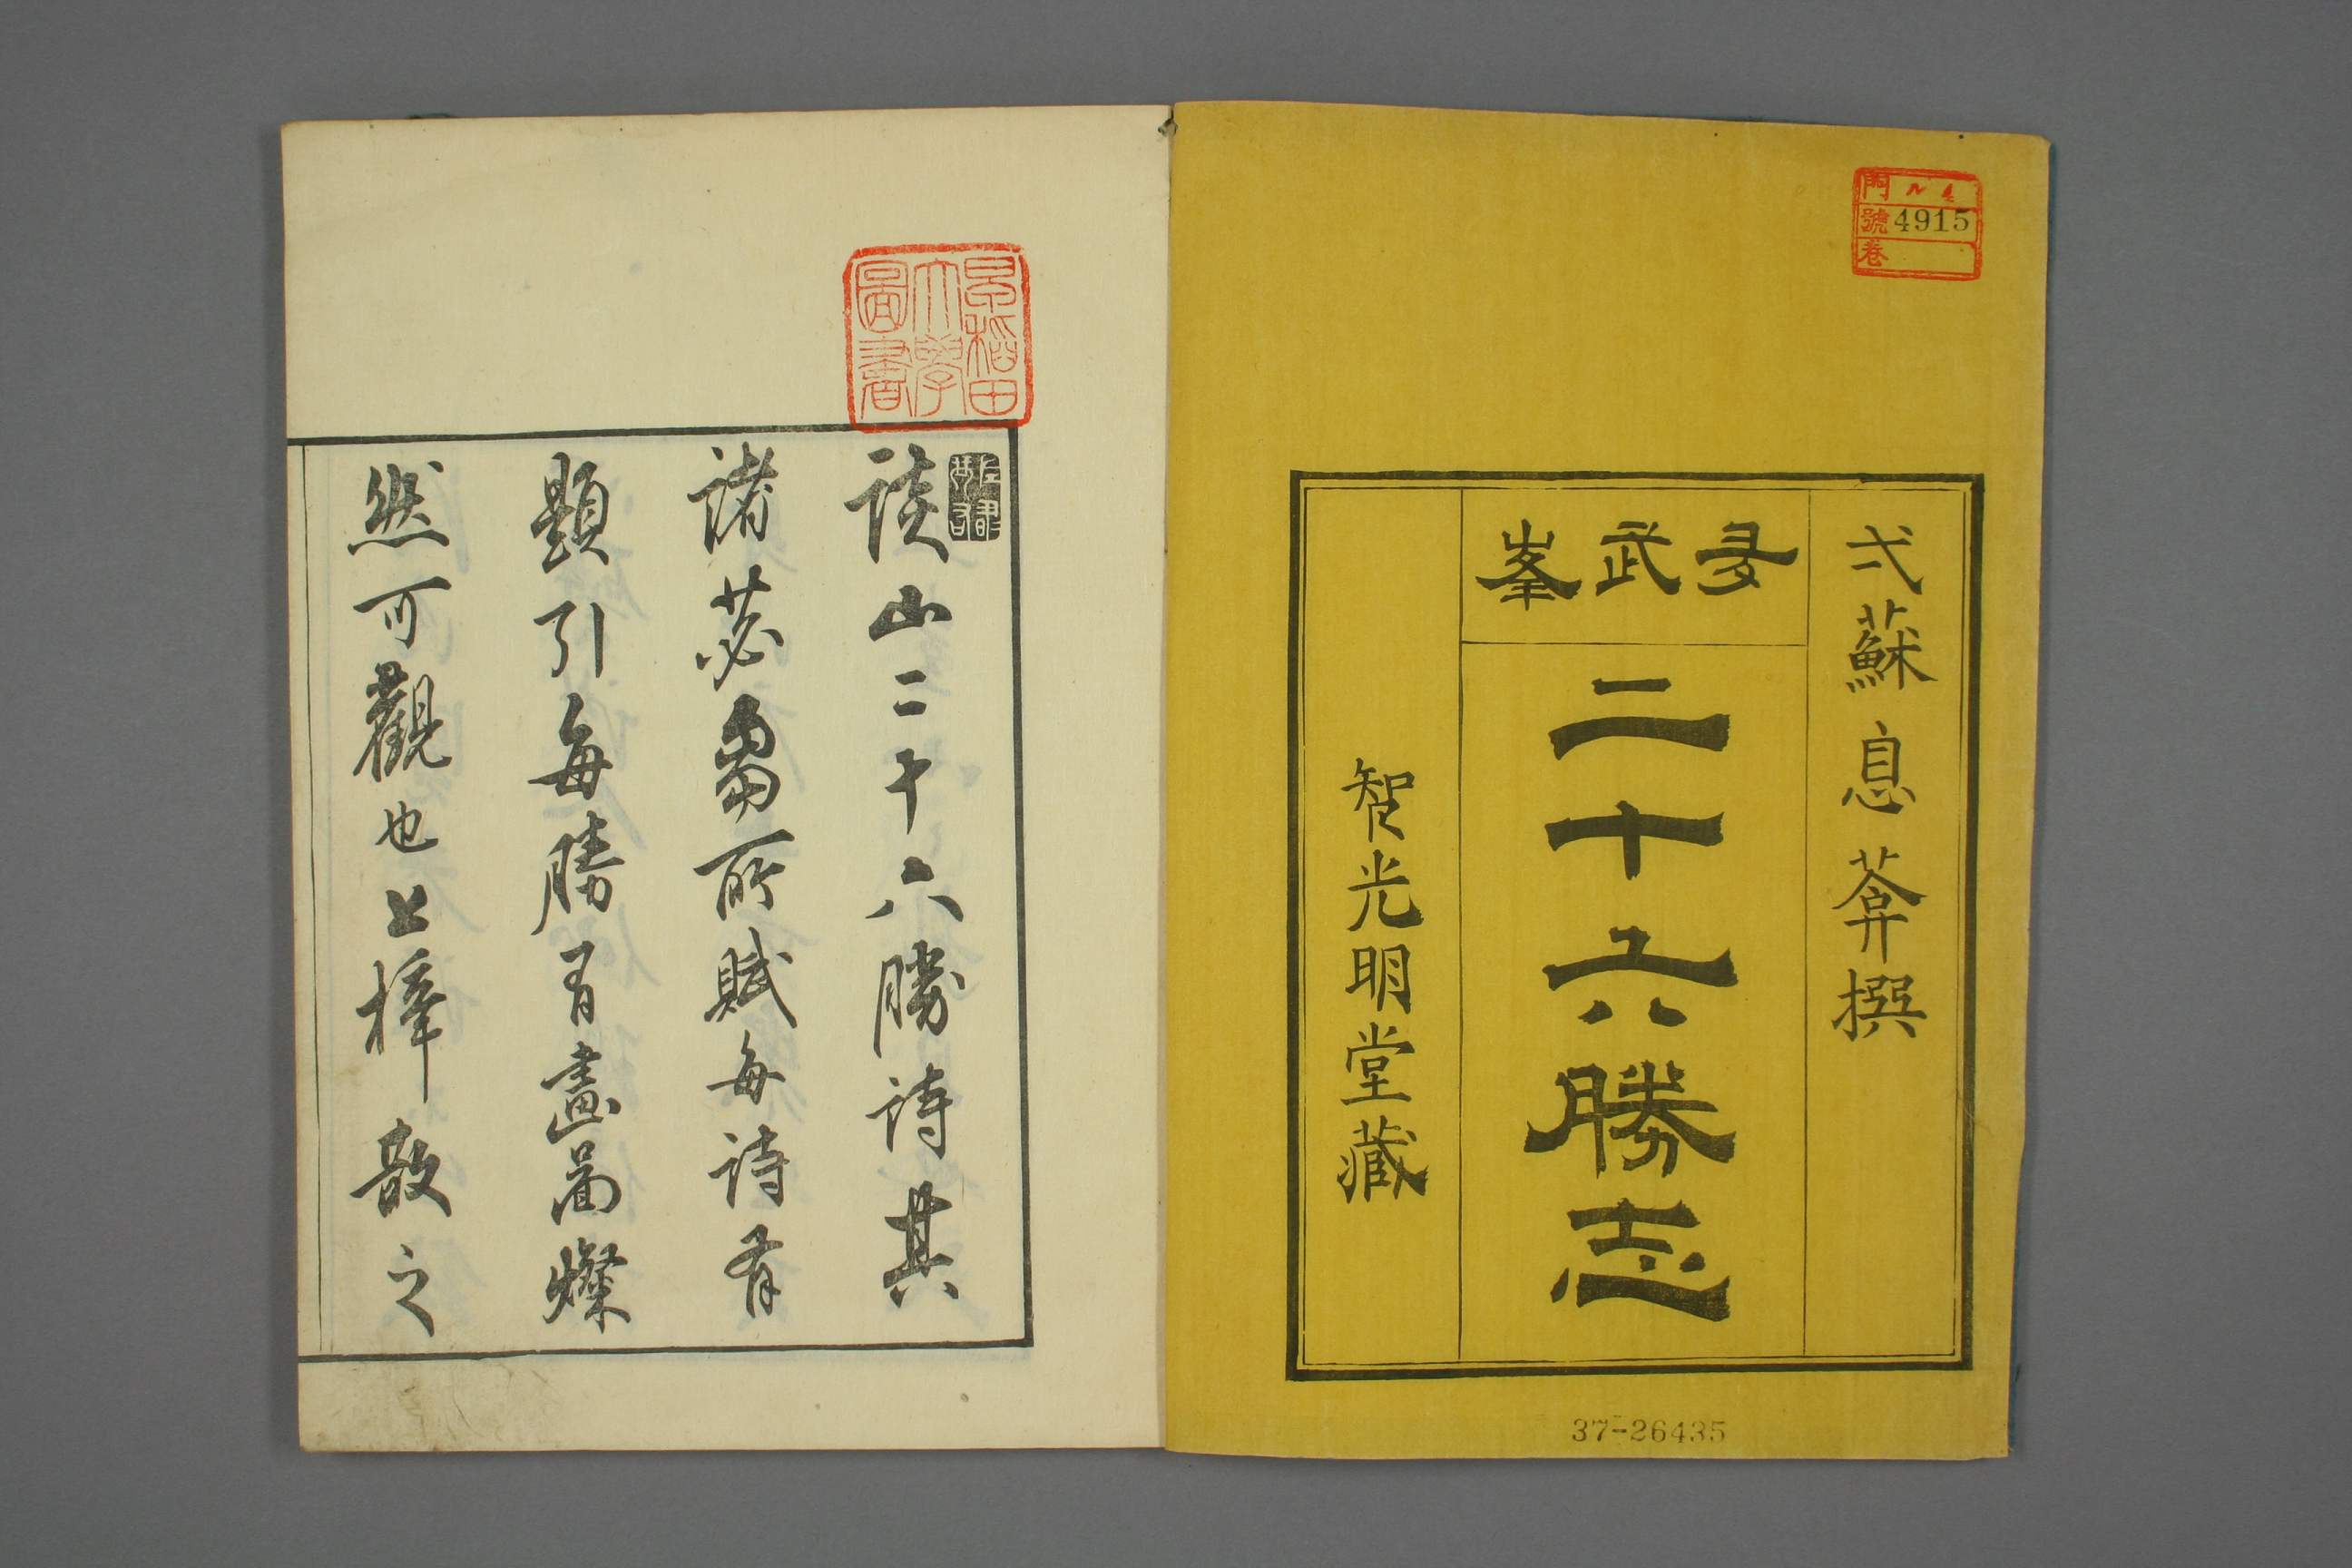 門 ル 4
號 4915
卷
弍蘇息葊撰
多武峯
二十六勝志
智光明堂藏
37-26435
早稻田
大學
圖書
談山二十六勝詩其
諸苾芻所賦每詩有
題引每勝有畫圖燦
然可觀也上梓散之